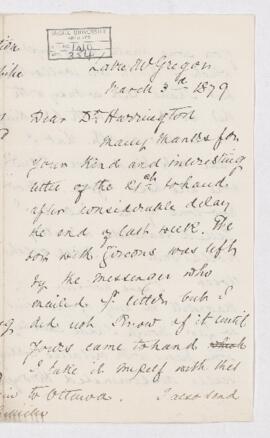 McGILL UNIVERSITY
ARCHIVES
ACC. NO. 1410
REF. 
Lake McGregor
March 3rd 1879
Dear Dr Harrington
Many thanks for
your kind and interesting
letter of the 21st to hand
after considerable delay
the end of last week. The
box with Zircons was left
by the messenger who
mailed yr letter but I
did not know of it until
yours came to hand
I take it myself with this
to Ottawa. I also send